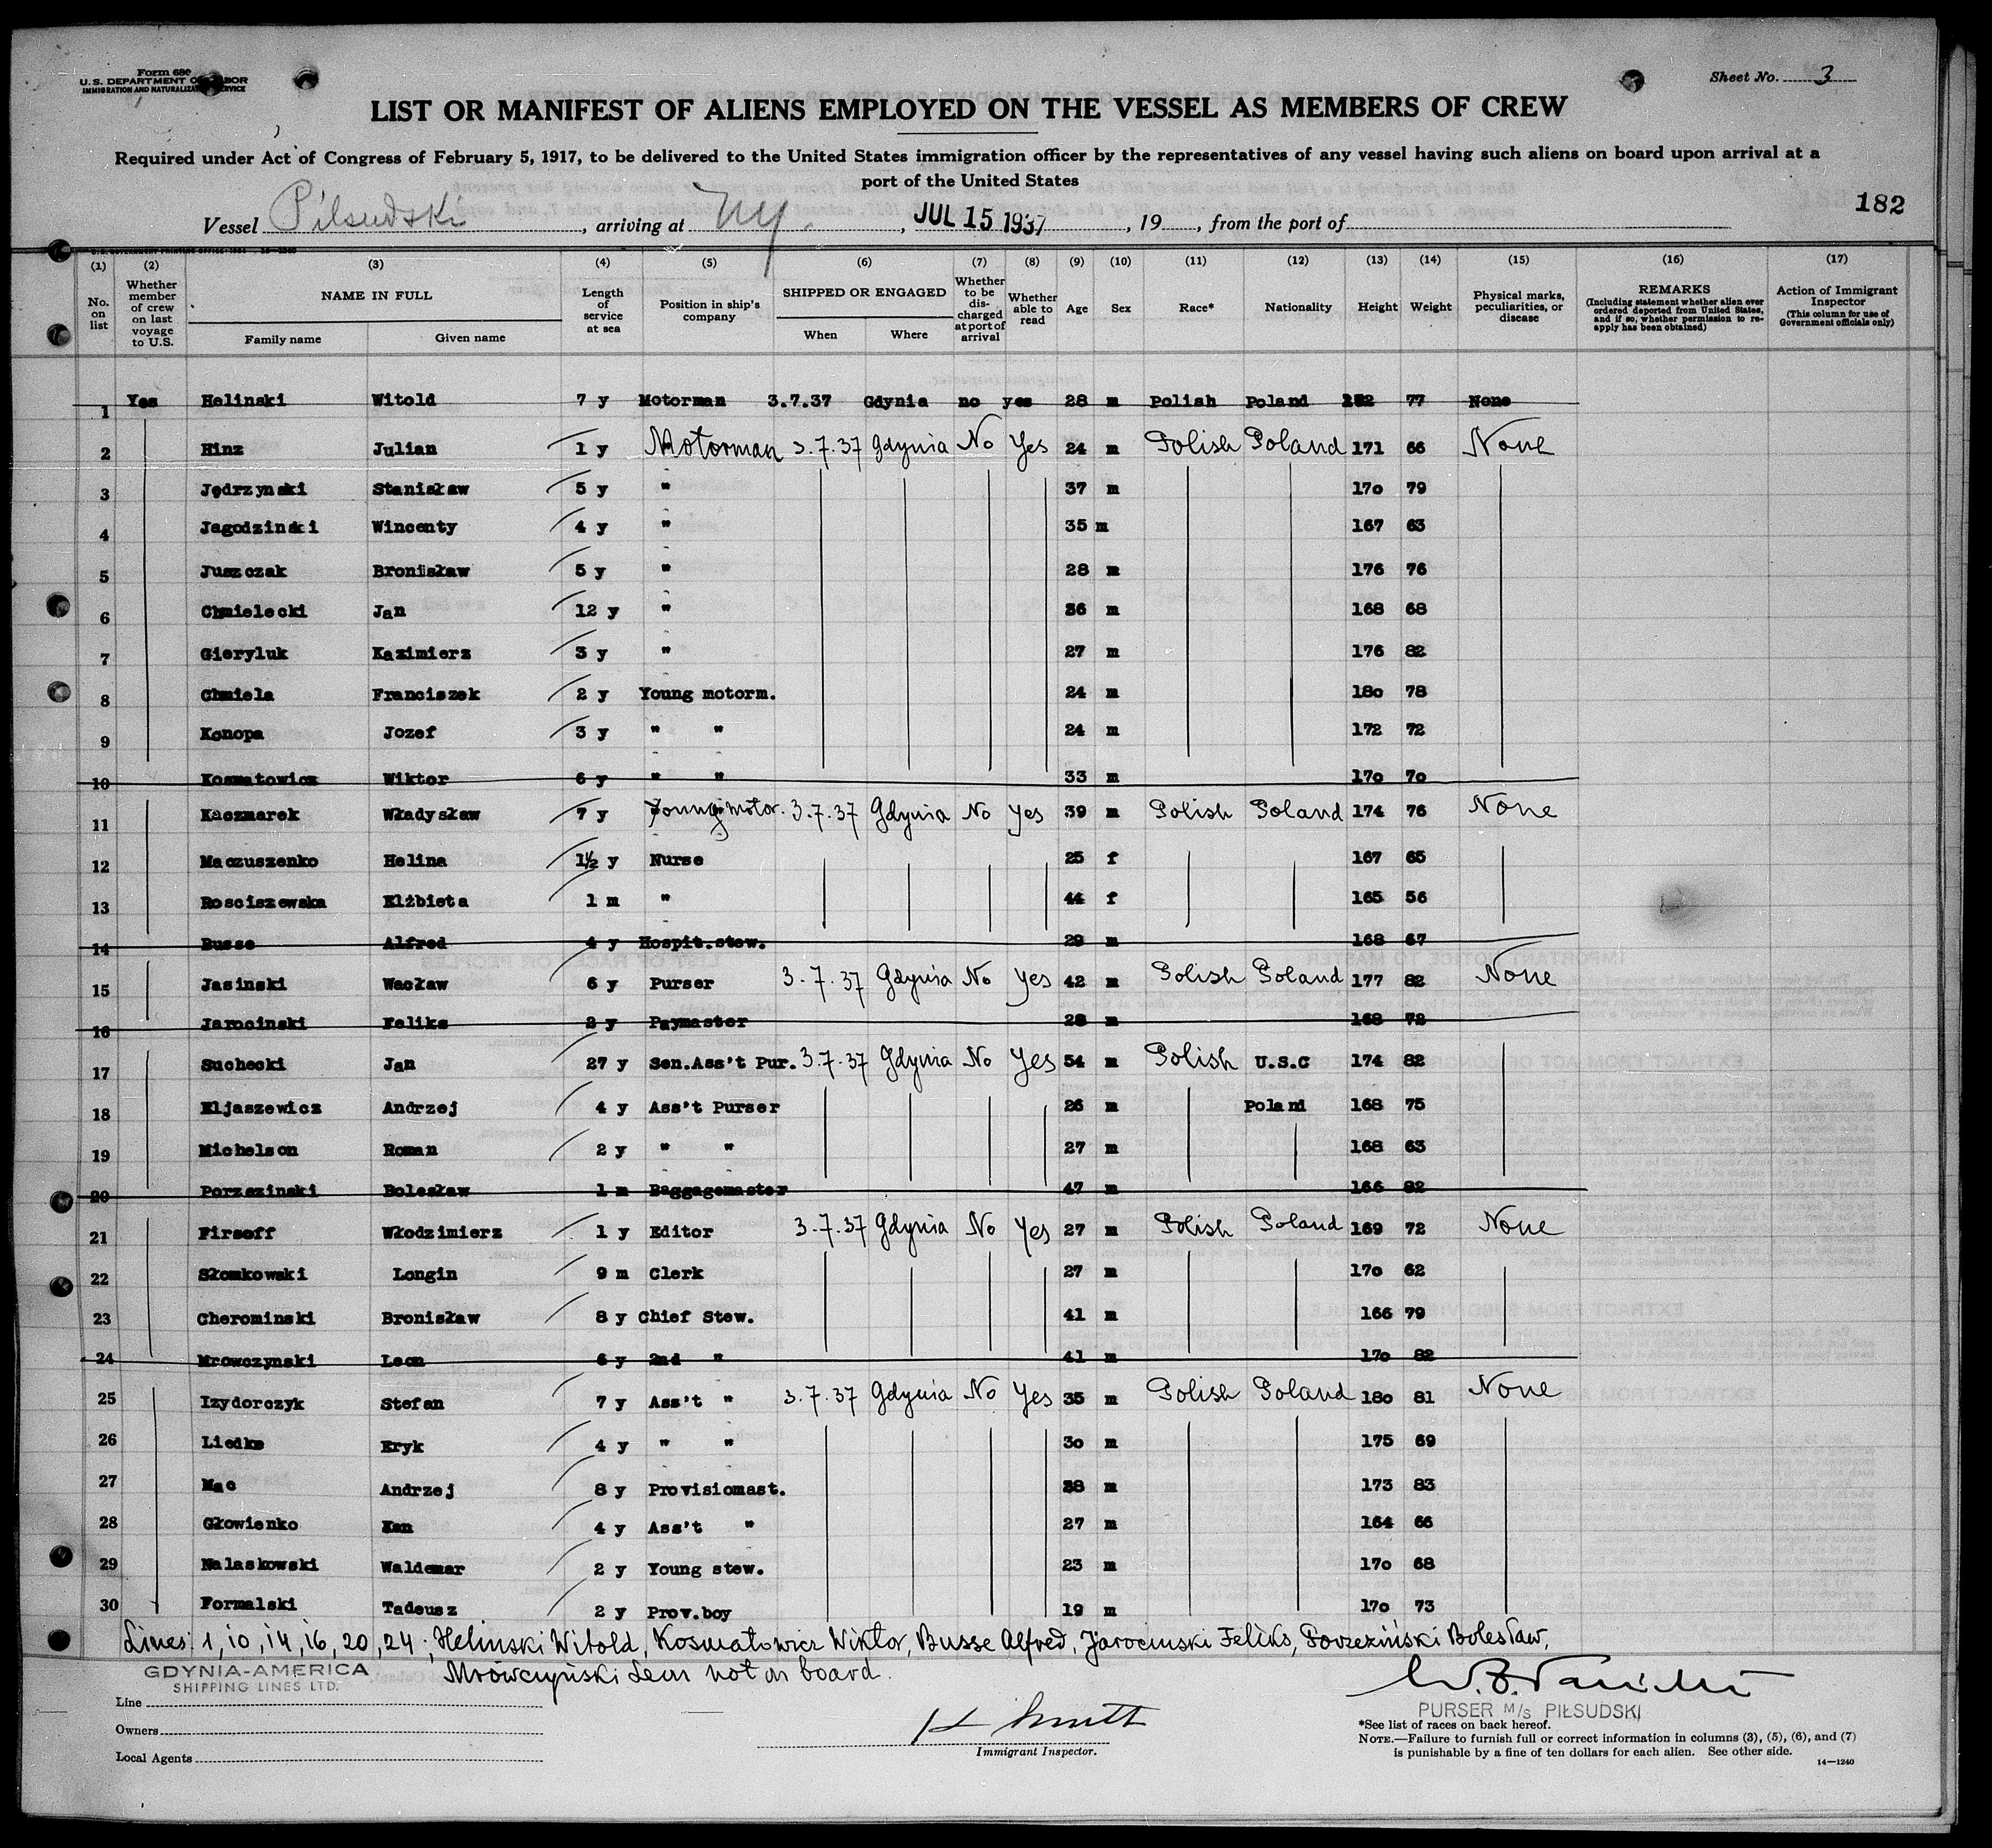 Form 680
U.S. DEPARTMENT OF LABOR
IMMIGRATION AND NATURALIZATION SERVICE
Sheet No. 3
LIST OR MANIFEST OF ALIENS EMPLOYED ON THE VESSEL AS MEMBERS OF CREW
Required under Act of Congress of February 5, 1917, to be delivered to the United States immigration officer by the representatives of any vessel having such aliens on board upon arrival at a
port of the United States
182
Vessel Pilsudski, arriving at NY., JUL 15 1937, 19, from the port of
(1) (2) (3) (4) (5) (6) (7) (8) (9) (10) (11) (12) (13) (14) (15) (16) (17)
No. on list
Whether member of crew on last voyage to U.S.
NAME IN FULL
Family name Given name
Length of service at sea
Position in ship's company
SHIPPED OR ENGAGED
When Where
Whether to be discharged at port of arrival
Whether able to read
Age
Sex
Race*
Nationality
Height
Weight
Physical marks, peculiarities, or disease
REMARKS
(Including statement whether alien ever ordered deported from United States, and if so, whether permission to re-apply has been obtained)
Action of Immigrant Inspector
(This column for use of Government officials only)
1 Yes Helinski Witold 7 y Motorman 3.7.37 Gdynia no yes 28 m Polish Poland 77 None
2 Hinz Julian 1 y Motorman 3.7.37 Gdynia No Yes 24 m Polish Poland 171 66 None
3 Jędrzynski Stanisław 5 y " 37 m 170 79
4 Jagodzinski Wincenty 4 y " 35 m 167 63
5 Juszczak Bronisław 5 y " 28 m 176 76
6 Chmielecki Jan 12 y " 36 m 168 68
7 Gieryluk Kazimierz 3 y " 27 m 176 82
8 Chmiela Franciszek 2 y Young motorm. 24 m 180 78
9 Konopa Jozef 3 y " " 24 m 172 72
10 Kosmatowicz Wiktor 6 y " " 33 m 170 70
11 Kaczmarek Władysław 7 y Young motor. 3.7.37 Gdynia No Yes 39 m Polish Poland 174 76 None
12 Maczuszenko Helina 1½ y Nurse 25 f 167 65
13 Rosciszewska Elżbieta 1 m " 44 f 165 56
14 Busse Alfred 4 y Hospit.stew. 29 m 168 67
15 Jasinski Wacław 6 y Purser 3.7.37 Gdynia No Yes 42 m Polish Poland 177 82 None
16 Jarocinski Feliks 2 y Paymaster 28 m 168 72
17 Suchecki Jan 27 y Sen.Ass't Pur. 3.7.37 Gdynia No Yes 54 m Polish U.S.C 174 82
18 Eljaszewicz Andrzej 4 y Ass't Purser 26 m Poland 168 75
19 Michelson Roman 2 y " " 27 m 168 63
20 Porzezinski Bolesław 1 m Baggagemaster 47 m 166 82
21 Firsoff Włodzimierz 1 y Editor 3.7.37 Gdynia No Yes 27 m Polish Poland 169 72 None
22 Słomkowski Longin 9 m Clerk 27 m 170 62
23 Cherominski Bronisław 8 y Chief Stew. 41 m 166 79
24 Mrowczynski Leon 6 y 2nd " 41 m 170 82
25 Izydorczyk Stefan 7 y Ass't " 3.7.37 Gdynia No Yes 35 m Polish Poland 180 81 None
26 Liedke Eryk 4 y " " 30 m 175 69
27 Mac Andrzej 8 y Provisiomast. 38 m 173 83
28 Głowienko 4 y Ass't " 27 m 164 66
29 Nalaskowski Waldemar 2 y Young stew. 23 m 170 68
30 Formalski Tadeusz 2 y Prov.boy 19 m 170 73
Lines: 1, 10, 14, 16, 20, 24; Helinski Witold, Kosmatowicz Wiktor, Busse Alfred, Jarocinski Feliks, Porzeziński Bolesław,
Mrówczyński Leon not on board.
GDYNIA-AMERICA
SHIPPING LINES LTD.
Line
Owners
Local Agents
Immigrant Inspector.
PURSER M/S PIŁSUDSKI
*See list of races on back hereof.
NOTE.—Failure to furnish full or correct information in columns (3), (5), (6), and (7)
is punishable by a fine of ten dollars for each alien. See other side.
14—1240